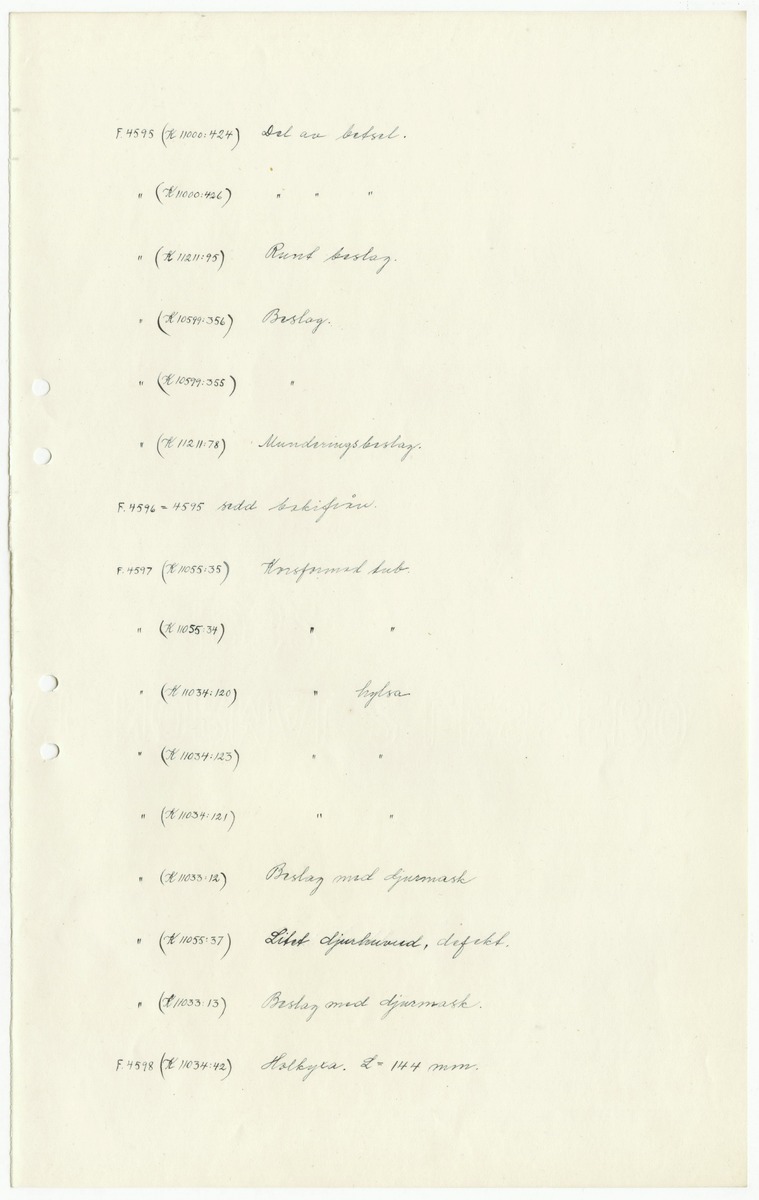 F. 4595 (K 11000:424) Del av betsel.
" (K 11000:426) " " "
" (K 11211:95) Runt beslag.
" (K 10599:356) Beslag.
" (K 10599:355) "
" (K 11211:78) Munderingsbeslag.
F. 4596 = 4595 sedd bakifrån.
F. 4597 (K 11055:35) Korsformad tub.
" (K 11055:34) " "
" (K 11034:120) " hylsa
" (K 11034:123) " "
" (K 11034:121) " "
" (K 11033:12) Beslag med djurmask
" (K 11055:37) Litet djurhuvud, defekt.
" (K 11033:13) Beslag med djurmask.
F. 4598 (K 11034:42) Holkyxa. L = 144 mm.